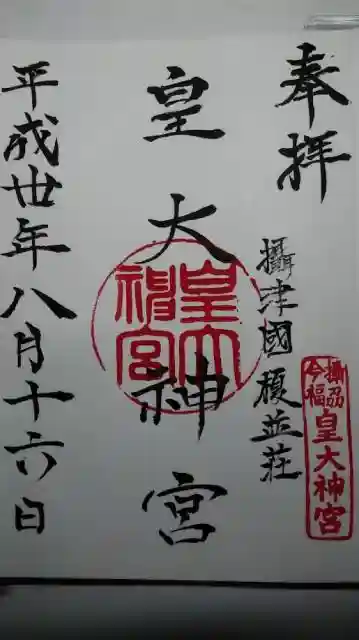 奉拝
攝津國榎並荘
今福
皇大神宮
皇大神宮
皇大神宮
平成丗年八月十六日